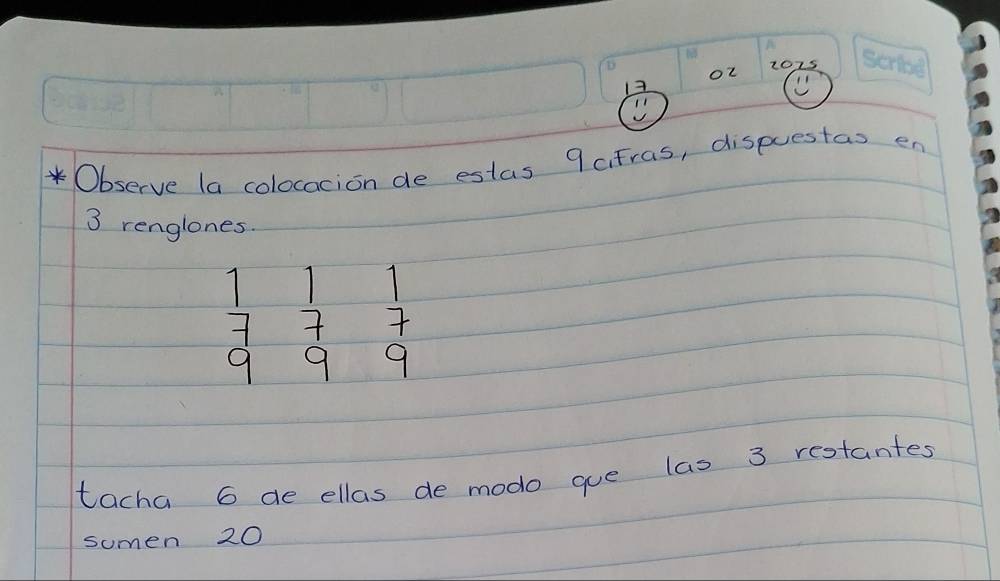 Scribe
D M A
17 02 2025
* Observe la colocación de estas 9 cifras, dispuestas en
3 renglones.
1 1 1
7 7 7
9 9 9
tacha 6 de ellas de modo que las 3 restantes
sumen 20